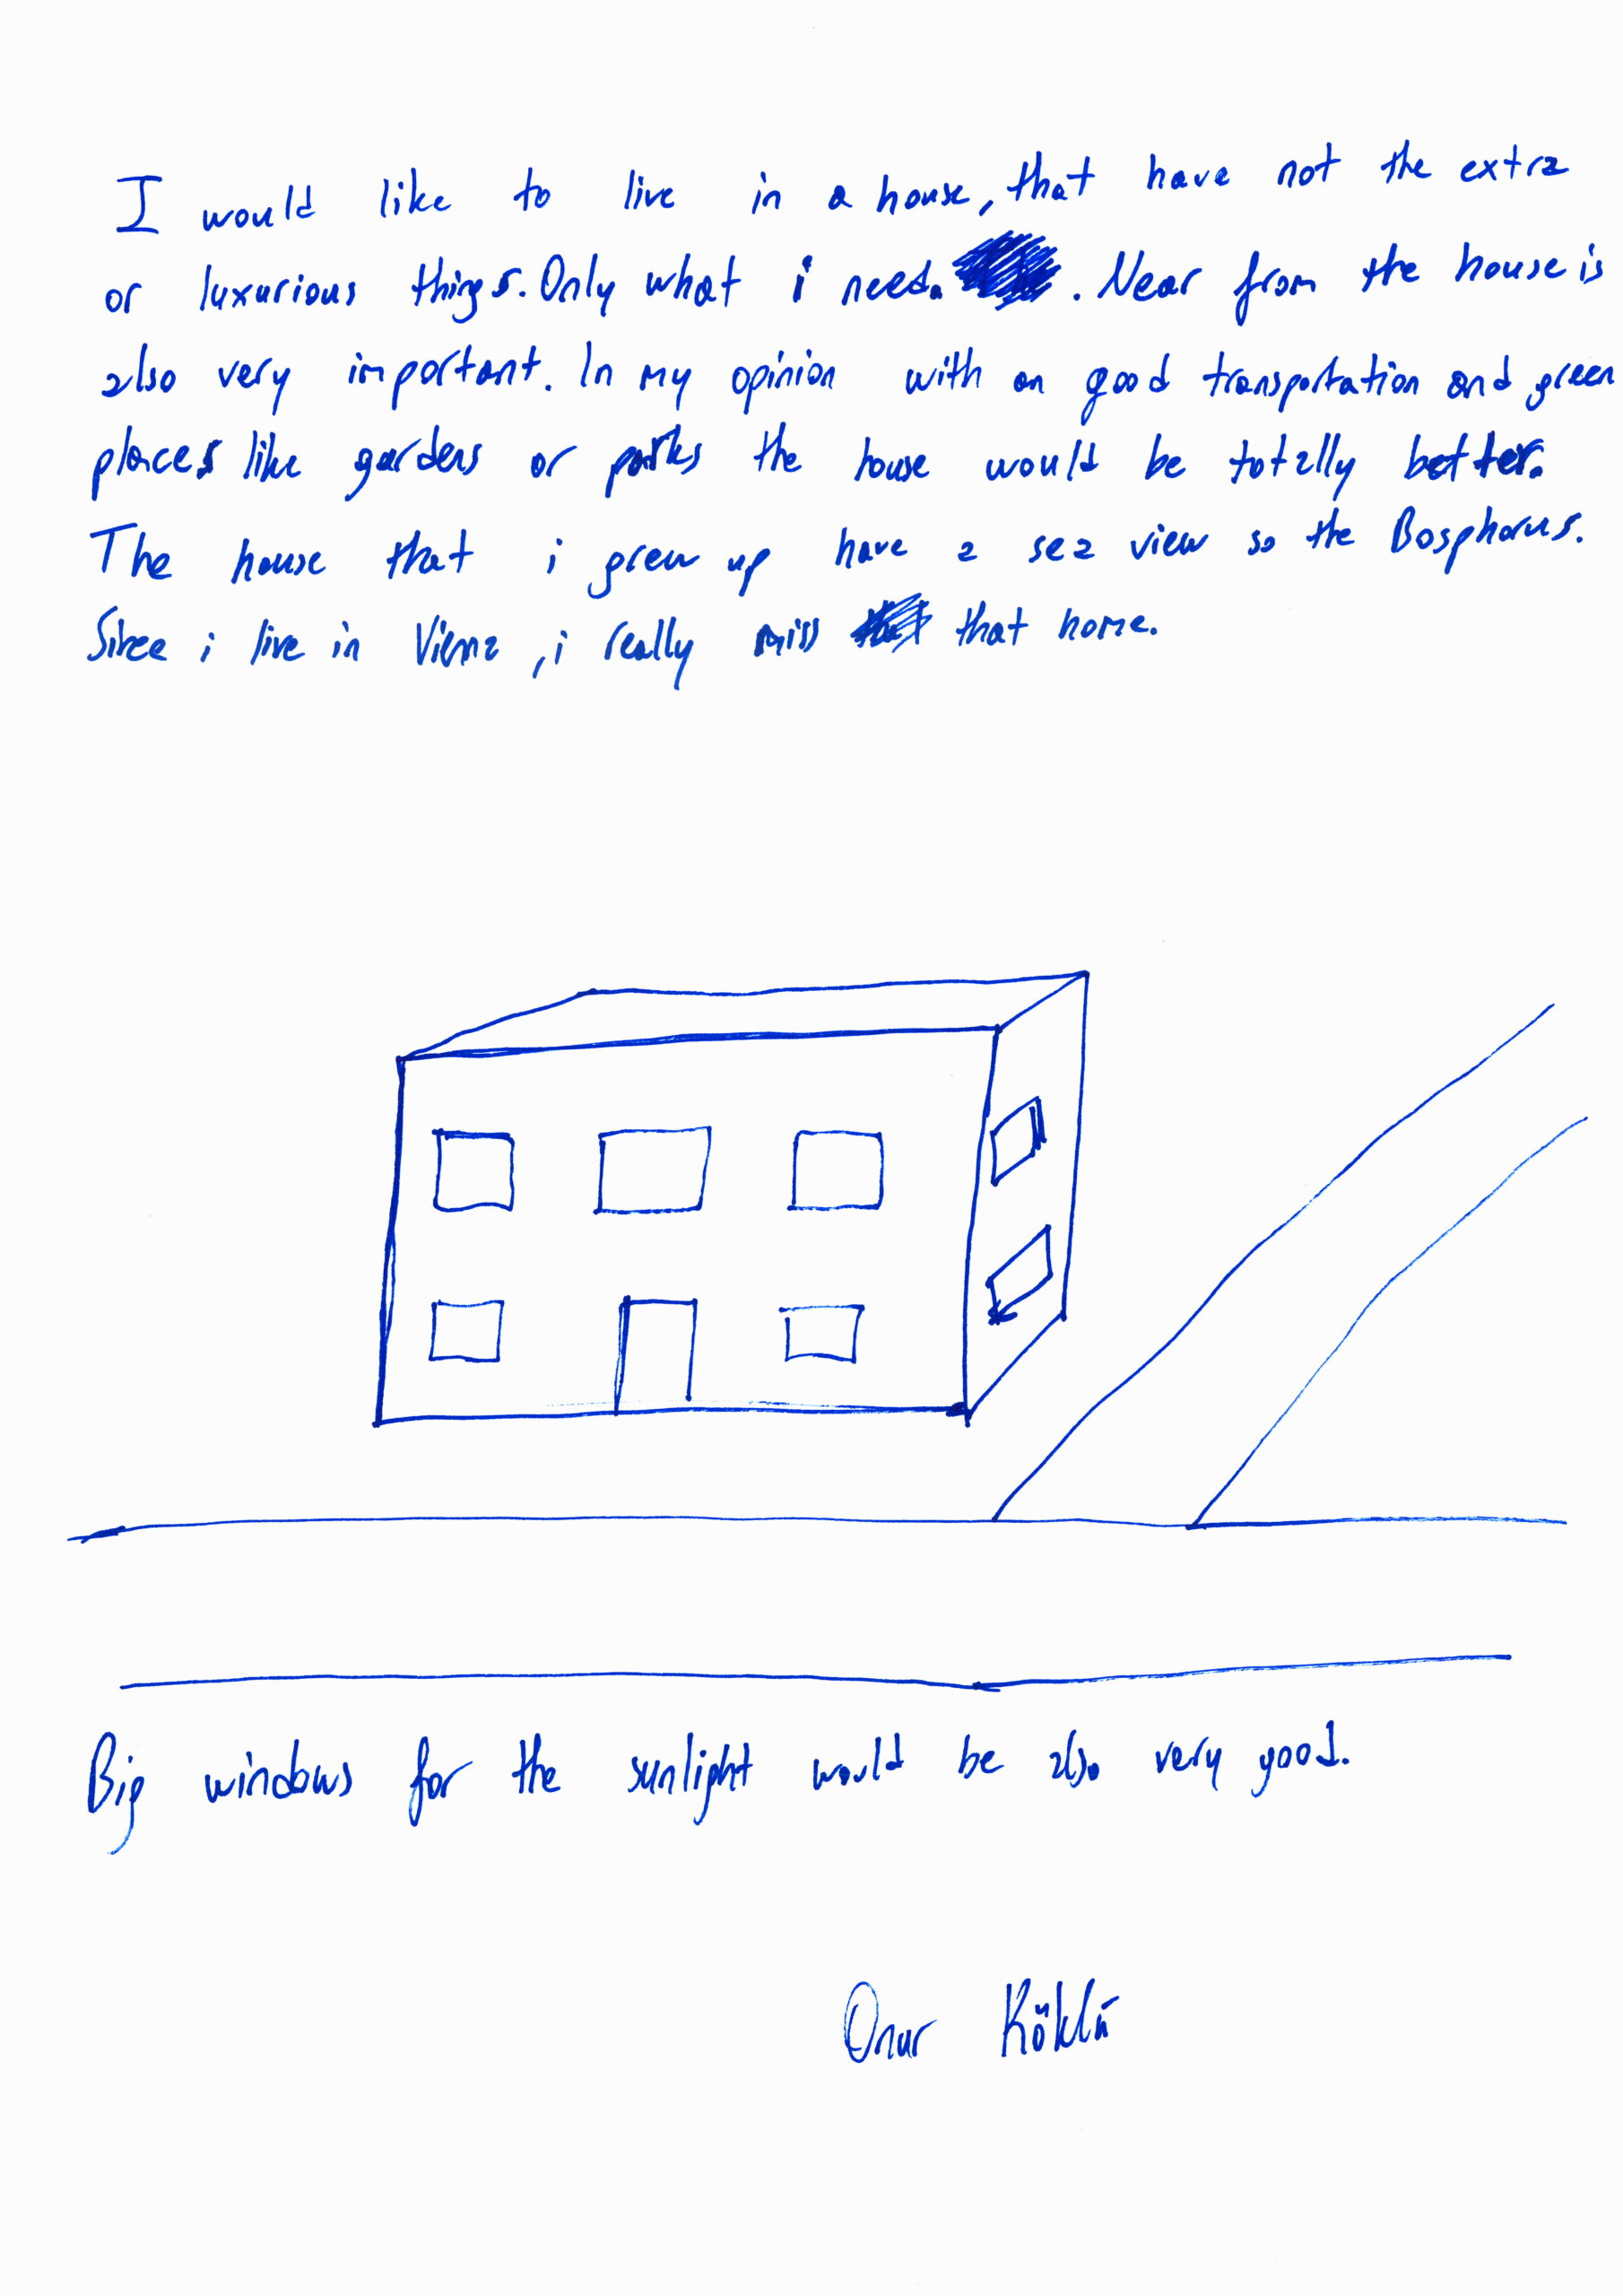 I would like to live in a house, that have not the extra
or luxurious things. Only what i need. . Near from the house is
also very important. In my opinion with an good transportation and green
places like gardens or parks the house would be totally better.
The house that i grew up have a sea view so the Bosphorus.
Since i live in Vienna, i really miss that home.
Big windows for the sunlight would be also very good.
Onur Köklü